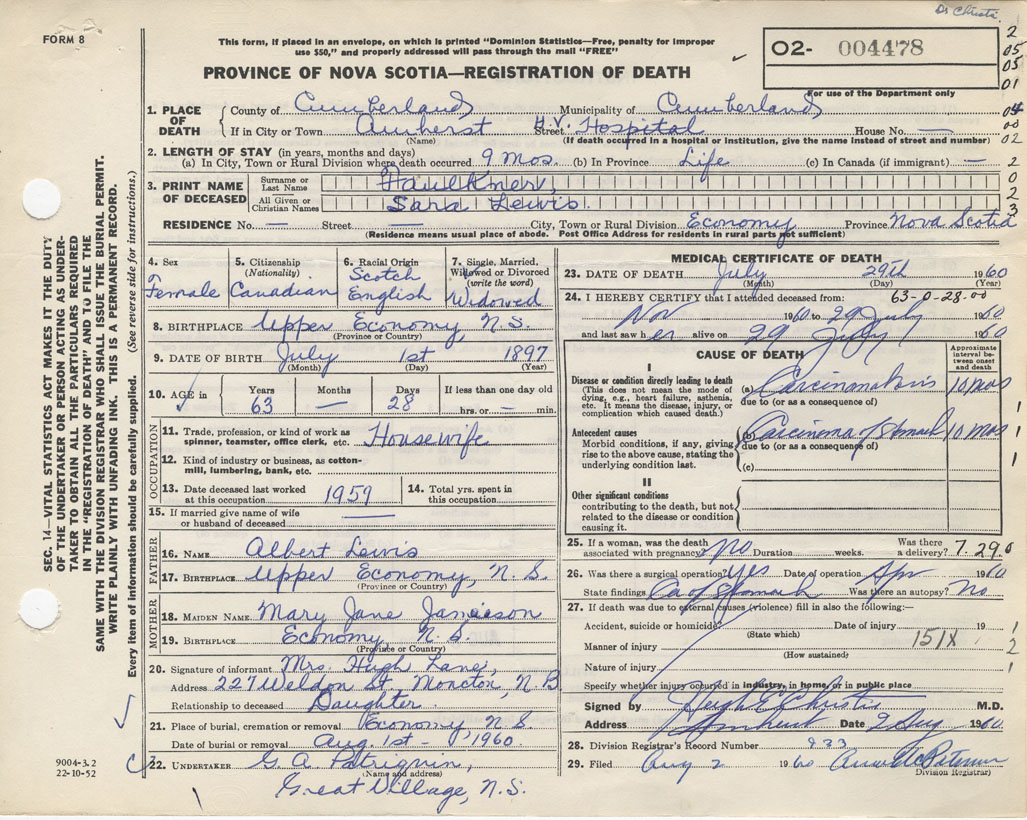 Dr Christi.
FORM 8
This form, if placed in an envelope, on which is printed "Dominion Statistics—Free, penalty for improper
use $50," and properly addressed will pass through the mail "FREE"
PROVINCE OF NOVA SCOTIA—REGISTRATION OF DEATH
02- 004478
For use of the Department only
2
05
05
01
04
00
02
2
0
2
3
1. PLACE OF DEATH
County of Cumberland Municipality of Cumberland
If in City or Town Amherst Street H.V. Hospital House No. —
(Name) (If death occurred in a hospital or institution, give the name instead of street and number)
2. LENGTH OF STAY (in years, months and days)
(a) In City, Town or Rural Division where death occurred 9 Mos. (b) In Province Life (c) In Canada (if immigrant) —
3. PRINT NAME OF DECEASED
Surname or Last Name Faulkner,
All Given or Christian Names Sara Lewis.
RESIDENCE No. — Street — City, Town or Rural Division Economy Province Nova Scotia
(Residence means usual place of abode. Post Office Address for residents in rural parts not sufficient)
4. Sex Female
5. Citizenship (Nationality) Canadian
6. Racial Origin Scotch English
7. Single, Married, Widowed or Divorced (write the word) Widowed
8. BIRTHPLACE Upper Economy N.S.
(Province or Country)
9. DATE OF BIRTH July 1st 1897
(Month) (Day) (Year)
10. AGE in Years 63 Months — Days 28 If less than one day old hrs. or — min.
OCCUPATION
11. Trade, profession, or kind of work as spinner, teamster, office clerk, etc. Housewife
12. Kind of industry or business, as cotton-mill, lumbering, bank, etc.
13. Date deceased last worked at this occupation 1959
14. Total yrs. spent in this occupation
15. If married give name of wife or husband of deceased —
FATHER
16. NAME Albert Lewis
17. BIRTHPLACE Upper Economy, N.S.
(Province or Country)
MOTHER
18. MAIDEN NAME Mary Jane Jamieson
19. BIRTHPLACE Economy N.S.
(Province or Country)
20. Signature of informant Mrs. Hugh Lane,
Address 227 Weldon St, Moncton, N.B
Relationship to deceased Daughter
21. Place of burial, cremation or removal Economy N.S
Date of burial or removal Aug. 1st - 1960.
22. UNDERTAKER G. A. Patriquin,
(Name and address)
Great Village, N.S.
MEDICAL CERTIFICATE OF DEATH
23. DATE OF DEATH July 29th 1960
(Month) (Day) (Year)
24. I HEREBY CERTIFY that I attended deceased from: 63-0-28-00
Nov 1960 to 29 July 1960
and last saw her alive on 29 July 1960
CAUSE OF DEATH
Approximate interval between onset and death
I
Disease or condition directly leading to death
(This does not mean the mode of dying, e.g., heart failure, asthenia, etc. It means the disease, injury, or complication which caused death.)
(a) Carcinomatosis 10 mos
due to (or as a consequence of)
Antecedent causes
Morbid conditions, if any, giving rise to the above cause, stating the underlying condition last.
(b) Carcinoma of Stomach 10 mos
due to (or as a consequence of)
(c)
1
1
1
II
Other significant conditions
contributing to the death, but not related to the disease or condition causing it.
25. If a woman, was the death associated with pregnancy? No Duration weeks. Was there a delivery? 7.290
26. Was there a surgical operation? Yes Date of operation Apr 1960
State findings Ca of Stomach Was there an autopsy? No
27. If death was due to external causes (violence) fill in also the following:—
Accident, suicide or homicide? Date of injury 19 1
(State which)
Manner of injury 151X 1
(How sustained) 2
Nature of injury 1
Specify whether injury occurred in industry, in home, or in public place
Signed by Hugh E Christie M.D.
Address Amherst Date 2 Aug 1960.
28. Division Registrar's Record Number 933
29. Filed Aug 2 1960
Division Registrar)
SEC. 14—VITAL STATISTICS ACT MAKES IT THE DUTY
OF THE UNDERTAKER OR PERSON ACTING AS UNDER-
TAKER TO OBTAIN ALL THE PARTICULARS REQUIRED
IN THE "REGISTRATION OF DEATH" AND TO FILE THE
SAME WITH THE DIVISION REGISTRAR WHO SHALL ISSUE THE BURIAL PERMIT.
WRITE PLAINLY WITH UNFADING INK. THIS IS A PERMANENT RECORD.
Every item of information should be carefully supplied. (See reverse side for instructions.)
9004-3.2
22-10-52